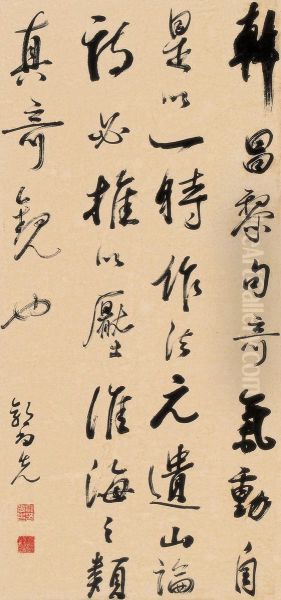 韓昌黎句奇氣動自
是以一時作法元遺山論
詩必推以壓淮海之類
真奇觀也
郭尚先